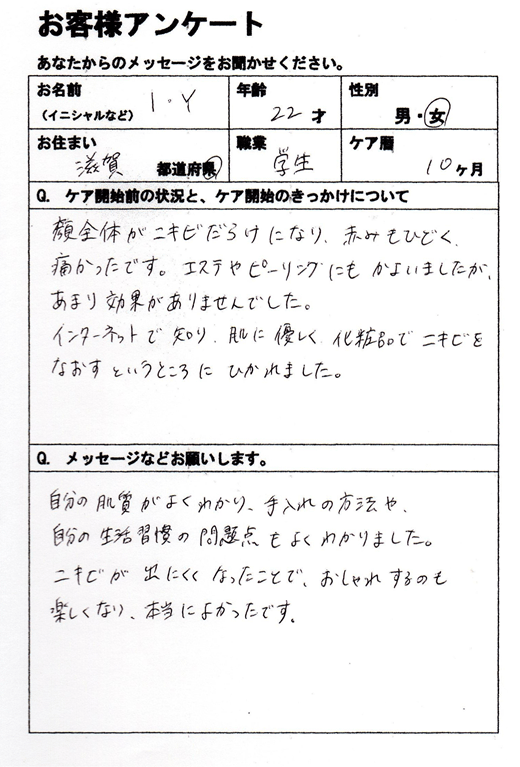 お客様アンケート
あなたからのメッセージをお聞かせください。
お名前
（イニシャルなど）
I・Y
年齢
22才
性別
男・女
お住まい
滋賀 都道府県
職業
学生
ケア暦
10ヶ月
Q. ケア開始前の状況と、ケア開始のきっかけについて
顔全体がニキビだらけになり、赤みもひどく、
痛かったです。エステやピーリングにもかよいましたが、
あまり効果がありませんでした。
インターネットで知り、肌に優しく、化粧品でニキビを
なおすというところにひかれました。
Q. メッセージなどお願いします。
自分の肌質がよくわかり、手入れの方法や、
自分の生活習慣の問題点もよくわかりました。
ニキビが出にくくなったことで、おしゃれするのも
楽しくなり、本当によかったです。